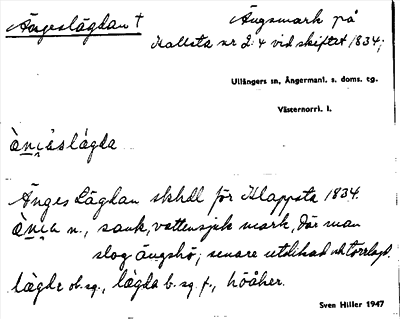 Ängeslägdan †
Ängsmark på
Kallsta nr 2:4 vid skiftet 1834;
Ullångers sn, Ångermanl. s. doms. tg.
Västernorrl. l.
Änges Lägdan skhdl för Klappsta 1834.
n., sank, vattensjuk mark, där man
slog änghö; senare utdikad och torrlagd.
lägde ob. sg., lägda b. sg. f., höåker.
Sven Hiller 1947